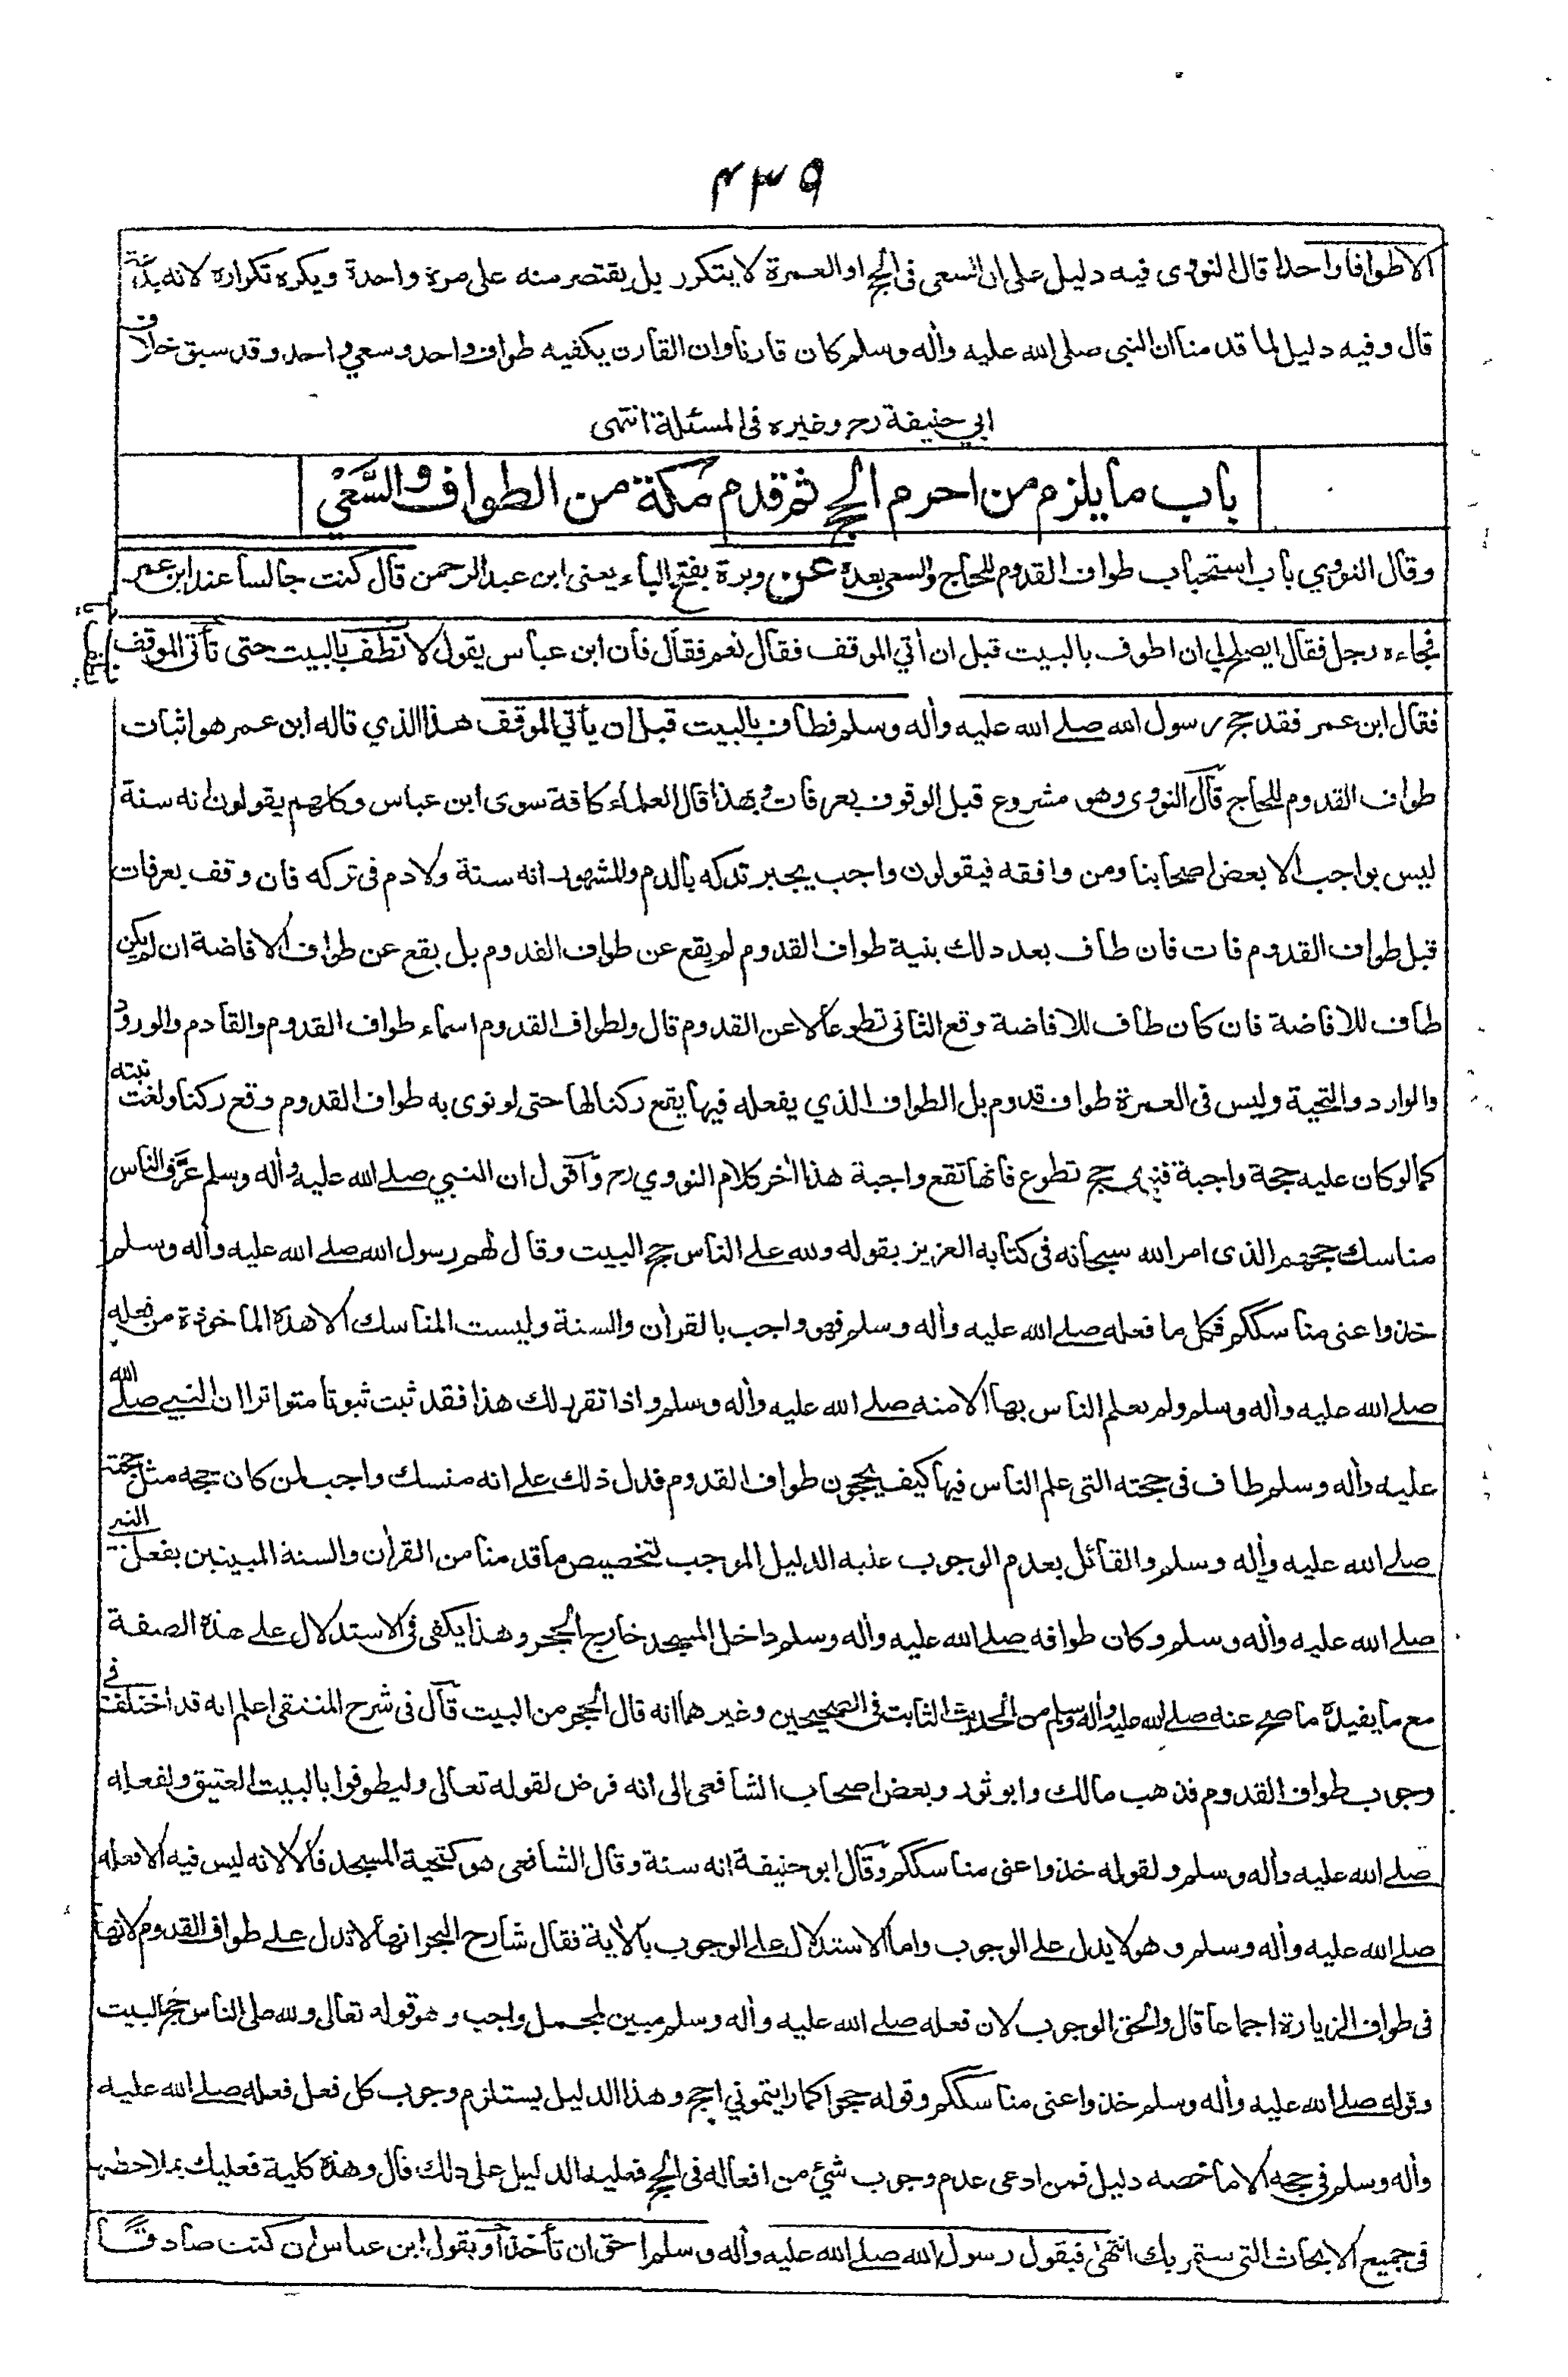 ٤٣٩
الا طوافا واحدا قال النووى فيه دليل على ان السعى فى الحج او العمرة لا يتكرر بل يقتصر منه على مرة واحدة ويكره تكراره لانه بدعة
قال وفيه دليل لما قدمنا ان النبى صلى الله عليه وأله وسلم كان قارنا وان القارن يكفيه طواف واحد وسعي واحد وقد سبق خلاف
ابي حنيفة رح وغيره فى المسئلة انتهى
باب ما يلزم من احرم بالحج ثم قدم مكة من الطواف والسَّعْي
وقال النووي باب استحباب طواف القدوم للحاج والسعى بعده عن وبرة بفتح الباء يعنى ابن عبد الرحمن قال كنت جالسا عند ابن عمر
فجاءه رجل فقال ايصلح لي ان اطوف بالبيت قبل ان أتي الموقف فقال نعم فقال فان ابن عباس يقول لا تطف بالبيت حتى تأتى الموقف
فقال ابن عمر فقد حج رسول الله صلے الله عليه وأله وسلم فطاف بالبيت قبل ان يأتي الموقف هذا الذي قاله ابن عمر هو اثبات
طواف القدوم للحاج قال النووى وهو مشروع قبل الوقوف بعرفات وبهذا قال العلماء كافة سوى ابن عباس وكلهم يقولون انه سنة
ليس بواجب الا بعض اصحابنا ومن وافقه فيقولون واجب يجبر تركه بالدم والمشهور انه سنة ولا دم فى تركه فان وقف بعرفات
قبل طواف القدوم فات فان طاف بعد ذلك بنية طواف القدوم لم يقع عن طواف القدوم بل يقع عن طواف الافاضة ان لم يكن
طاف للافاضة فان كان طاف للافاضة وقع الثانى تطوعا لا عن القدوم قال ولطواف القدوم اسماء طواف القدوم والقادم والورود
والوارد والتحية وليس فى العمرة طواف قدوم بل الطواف الذي يفعله فيها يقع ركنا لها حتى لو نوى به طواف القدوم وقع ركنا ولغت نيته
كما لو كان عليه حجة واجبة فنوى حج تطوع فانها تقع واجبة هذا أخر كلام النووي رح وأقول ان النبي صلے الله عليه وأله وسلم عرَّف الناس
مناسك حجهم الذى امر الله سبحانه فى كتابه العزيز بقوله ولله على الناس حج البيت وقال لهم رسول الله صلے الله عليه وأله وسلم
خذوا عنى مناسككم فكل ما فعله صلے الله عليه وأله وسلم فهو واجب بالقرأن والسنة وليست المناسك الا هذه الماخوذة من فعله
صلے الله عليه وأله وسلم ولم يعلم الناس بها الا منه صلے الله عليه وأله وسلم واذا تقرر لك هذا فقد ثبت ثبوتا متواترا ان النبي صلے الله
عليه وأله وسلم طاف فى حجته التى علم الناس فيها كيف يحجون طواف القدوم فدل ذلك على انه منسك واجب لمن كان حجه مثل حجته
صلے الله عليه وأله وسلم والقائل بعدم الوجوب عليه الدليل الموجب لتخصيص ما قدمنا من القرأن والسنة المبينين بفعل النبي
صلے الله عليه وأله وسلم وكان طوافه صلے الله عليه وأله وسلم داخل المسجد خارج الحجر وهذا يكفى فى الاستدلال على هذه الصفة
مع ما يفيده ما صح عنه صلے الله عليه وأله وسلم من الحديث الثابت فى الصحيحين وغيرهما انه قال الحجر من البيت قال فى شرح المنتقى اعلم انه قد اختلف فى
وجوب طواف القدوم فذهب مالك وابو ثور وبعض اصحاب الشافعى الى انه فرض لقوله تعالى وليطوفوا بالبيت العتيق ولفعله
صلے الله عليه وأله وسلم ولقوله خذوا عنى مناسككم وقال ابو حنيفة انه سنة وقال الشافعى هو كتحية المسجد قالا لانه ليس فيه الا فعله
صلے الله عليه وأله وسلم وهو لا يدل على الوجوب واما الاستدلال على الوجوب بالأية فقال شارح البحر انها لا تدل على طواف القدوم لانها
فى طواف الزيارة اجماعا قال والحق الوجوب لان فعله صلے الله عليه وأله وسلم مبين لمجمل واجب وهو قوله تعالى ولله على الناس حج البيت
وقوله صلے الله عليه وأله وسلم خذوا عنى مناسككم وقوله حجوا كما رايتموني احج وهذا الدليل يستلزم وجوب كل فعل فعله صلے الله عليه
وأله وسلم فى حجه الا ما خصه دليل فمن ادعى عدم وجوب شئ من افعاله فى الحج فعليه الدليل على ذلك قال وهذه كلية فعليك بملاحظتها
فى جميع الابحاث التى ستمر بك انتهى فبقول رسول الله صلے الله عليه وأله وسلم احق ان تأخذ او بقول ابن عباس ان كنت صادقا